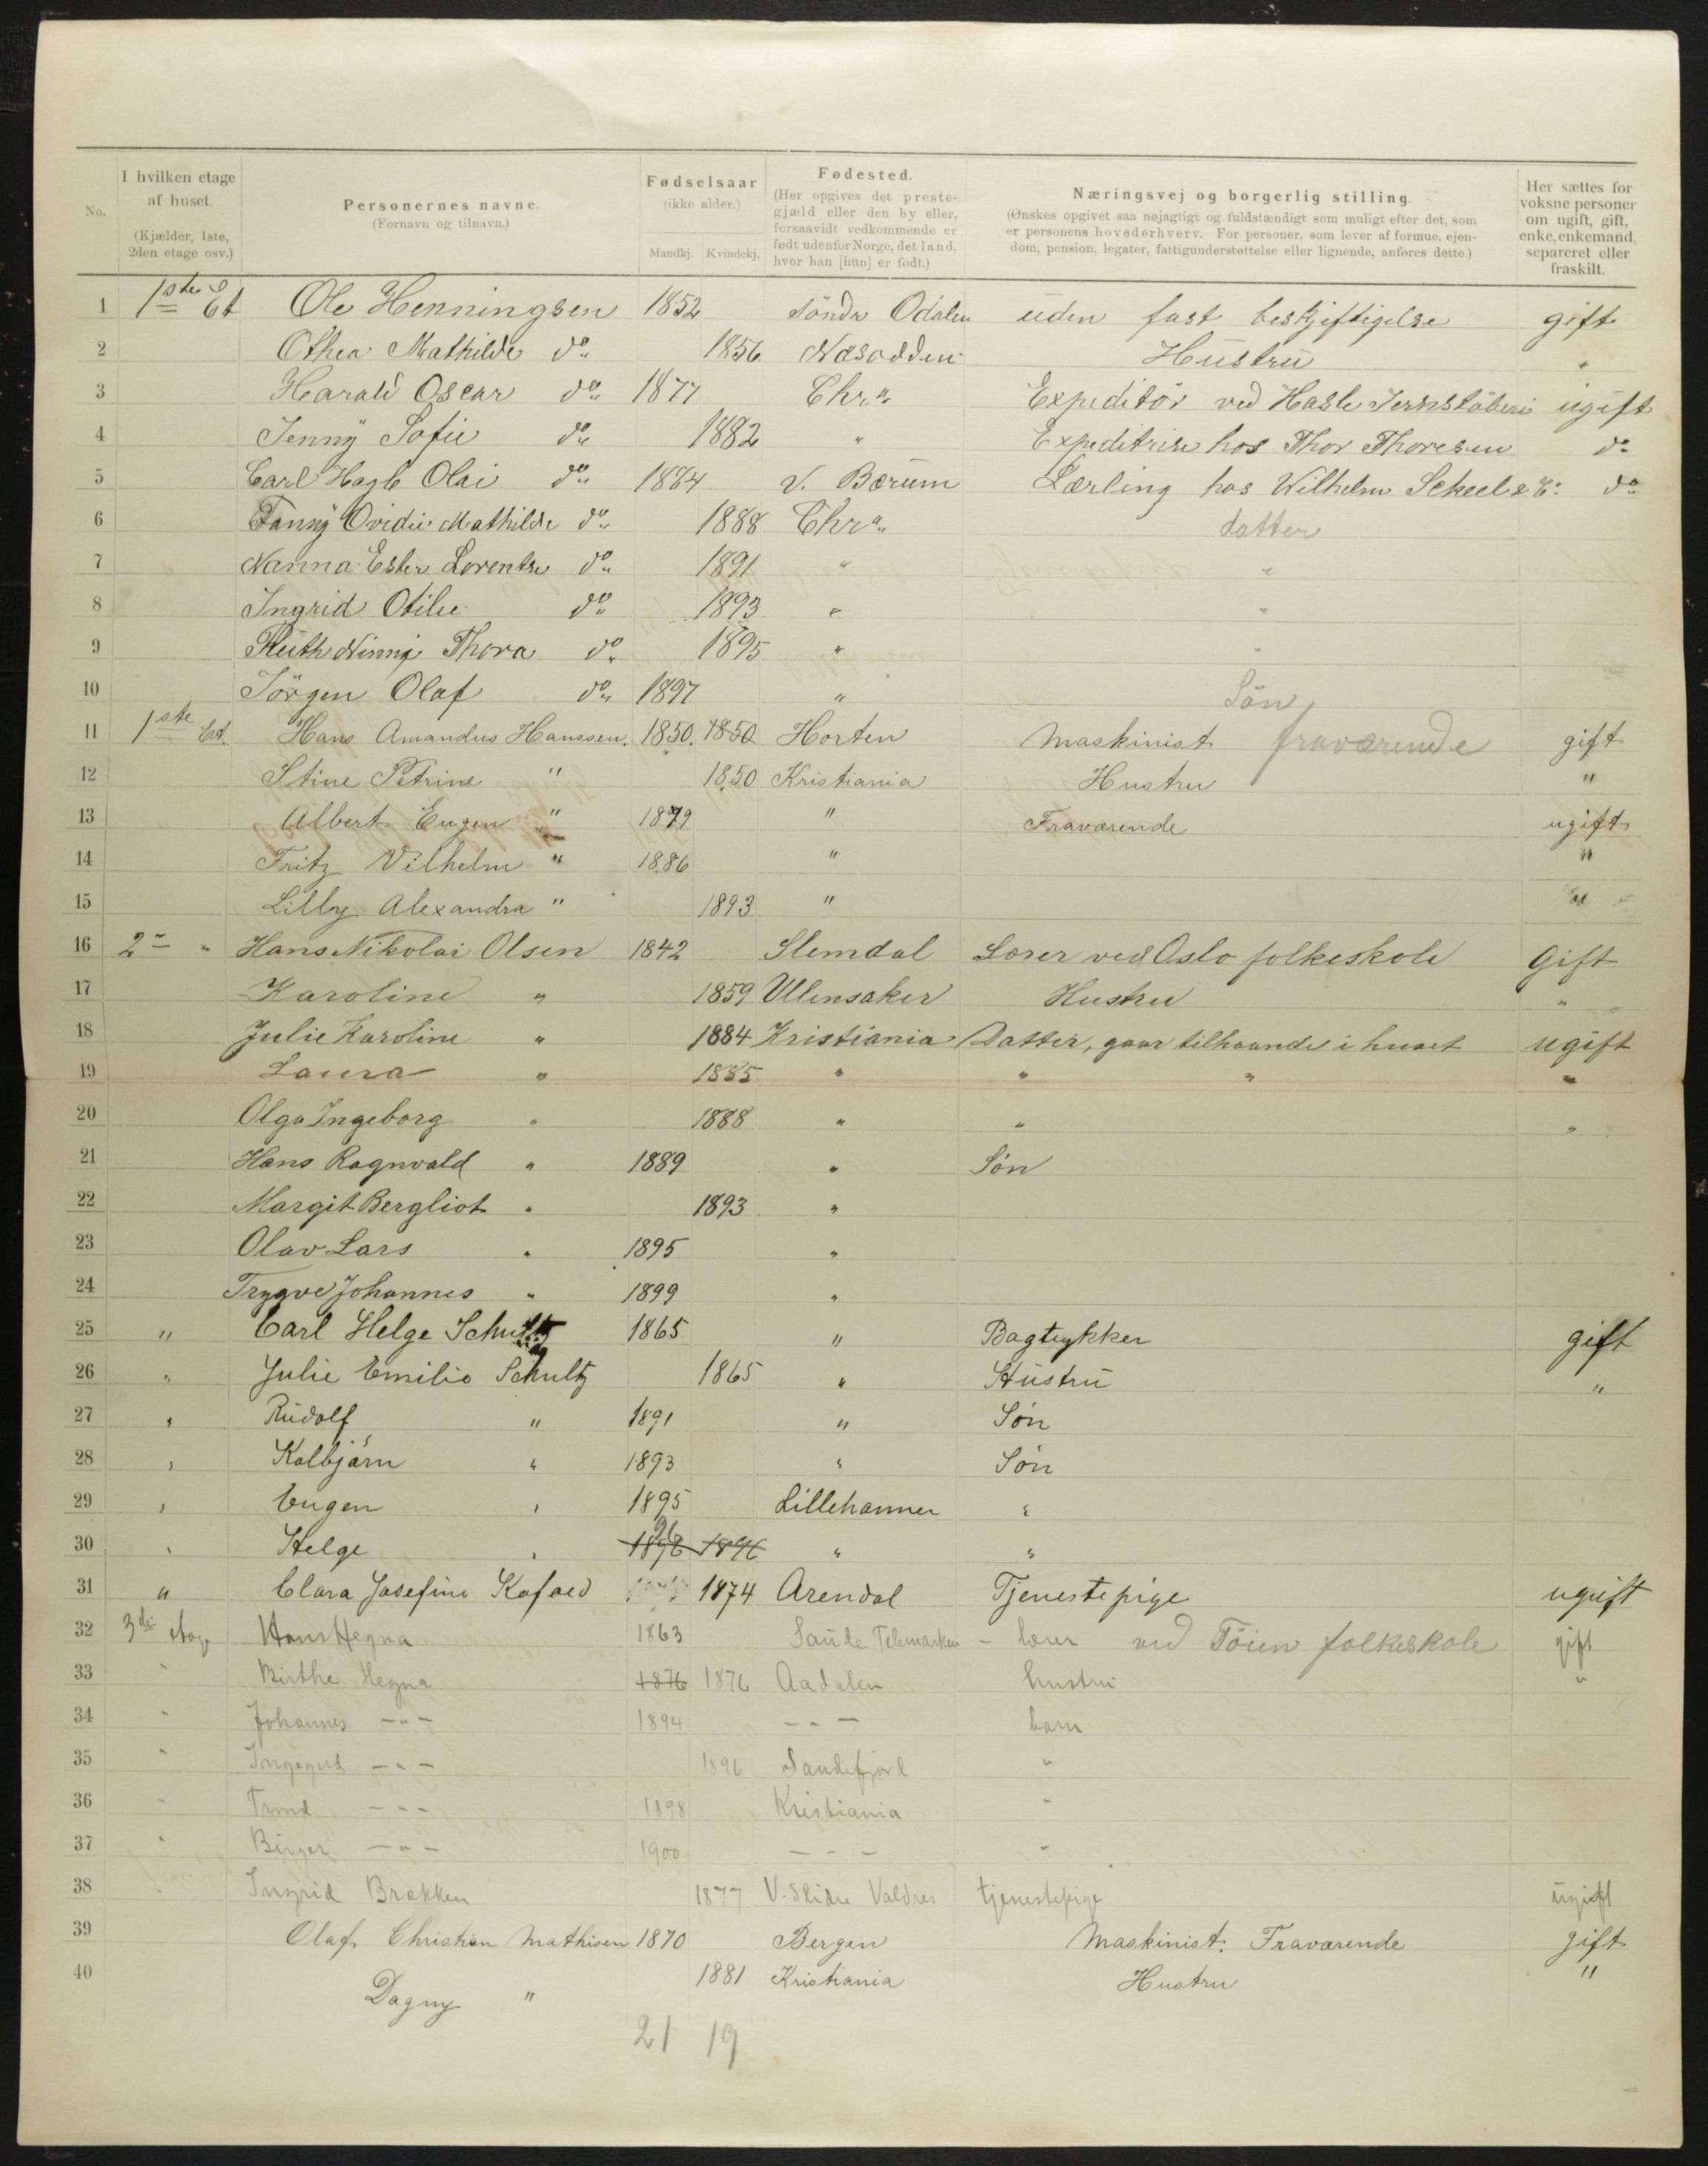 No. | I hvilken etage af huset. (Kjælder, 1ste, 2den etage osv.) | Personernes navne. (Fornavn og tilnavn.) | Fødselsaar (ikke alder.) Mandkj. Kvindekj. | Fødested. (Her opgives det prestegjæld eller den by eller, forsaavidt vedkommende er født udenfor Norge, det land, hvor han [hun] er født.) | Næringsvej og borgerlig stilling. (Ønskes opgivet saa nøjagtigt og fuldstændigt som muligt efter det, som er personens hovederhverv. For personer, som lever af formue, ejendom, pension, legater, fattigunderstøttelse eller lignende, anføres dette.) | Her sættes for voksne personer om ugift, gift, enke, enkemand, separeret eller fraskilt.
1 1ste Et Ole Henningsen 1852 Söndr Odalen uden fast beskjeftigelse gift
2 Othea Mathilde do 1856 Næsodden Hustru "
3 Harald Oscar do 1877 Chra Expeditör ved Hasle Jernstöberi ugift
4 Jenny Sofie do 1882 " Expeditrise hos Thor Thoresen do
5 Carl Hagb Olai do 1884 V. Bærum Lærling hos Wilhelm Scheel & Co do
6 Fanny Ovidie Mathilde do 1888 Chra datter
7 Nanna Ester Lorentse do 1891 " "
8 Ingrid Otilie do 1893 " "
9 Ruth Ninni Thora do 1895 " "
10 Jörgen Olaf do 1897 " Sön
11 1ste Et. Hans Amandus Hanssen. 1850. 1850 Horten Maskinist fraværende gift
12 Stine Petrine " 1850 Kristiania Hustru "
13 Albert Eugen " 1879 " Fraværende ugift
14 Fritz Vilhelm " 1886 " "
15 Lilly Alexandra " 1893 " "
16 2- " Hans Nikolai Olsen 1842 Slemdal Lærer ved Oslo folkeskole Gift
17 Karoline " 1859 Ullensaker Hustru "
18 Julie Karoline " 1884 Kristiania Datter, gaar tilhaande i huset ugift
19 Laura " 1885 " " " "
20 Olga Ingeborg " 1888 " " "
21 Hans Ragnvald " 1889 " Søn
22 Margit Bergliot " 1893 "
23 Olav Lars " 1895 "
24 Trygve Johannes " 1899 "
25 " Carl Helge Schultz 1865 " Bogtrykker gift
26 " Julie Emilie Schultz 1865 " Hustru "
27 " Rudolf " 1891 " Søn
28 " Kolbjørn " 1893 " Søn
29 " Eugen " 1895 Lillehammer "
30 " Helge " 96 1896 1896 " "
31 " Clara Josefine Kofoed 1874 Arendal Tjenestepige ugift
32 3die etage Hans Hegna 1863 Saude Telemarken - lærer ved Töien folkeskole gift
33 " Birthe Hegna 1876 1876 Aadalen hustru "
34 " Johannes -"- 1894 - - - barn
35 " Ingegerd -"- 1896 Sandefjord "
36 " Trond -"- 1898 Kristiania "
37 " Birger -"- 1900 - - - "
38 " Ingrid Brekken 1877 V. Slidre Valdres tjenestepige ugift
39 Olaf Christian Mathisen 1870 Bergen Maskinist. Fraværende gift
40 Dagny " 1881 Kristiania Hustru "
21 19